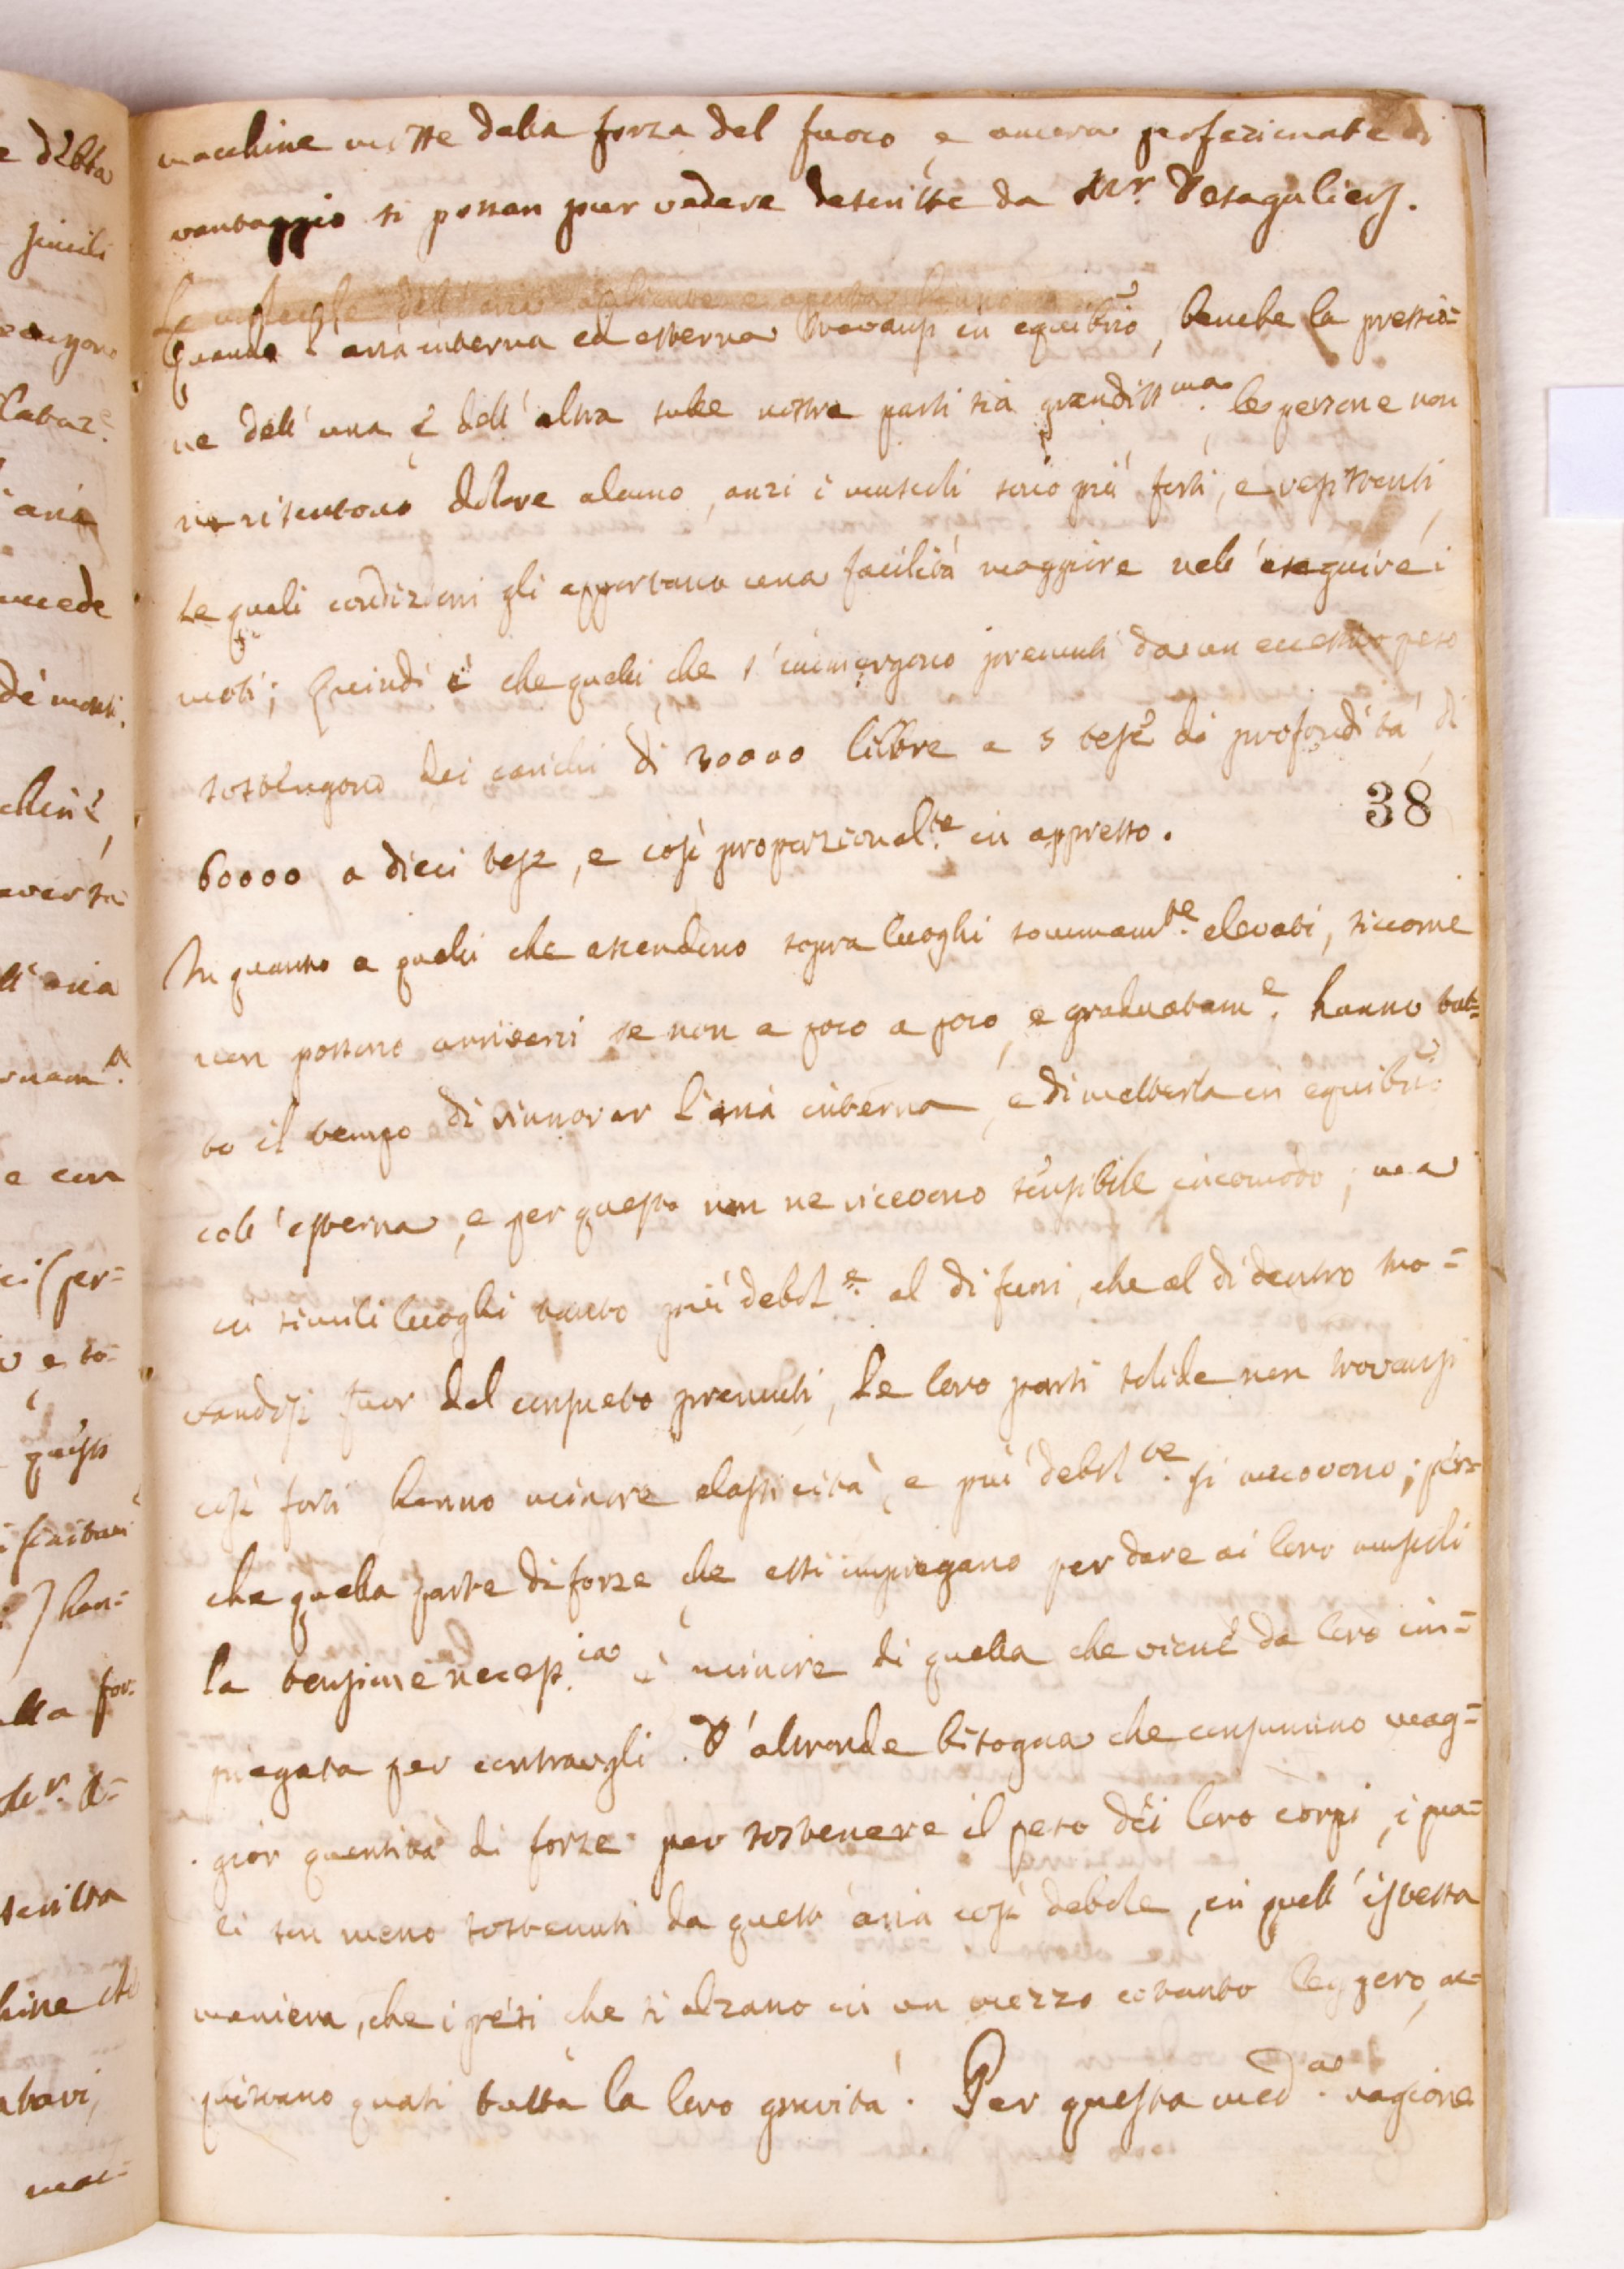 macchine mosse dalla forza del fuoco, e ancora perfezionate di
vantaggio si posson pur vedere descritte da Mr. Desaguliers.
Quando l'aria interna ed esterna trovansi in equibrio, benche la pressio=
ne dell'una, e dell'altra sulle nostre parti sia grandissma. le persone non
ne risentono dolore alcuno, anzi i muscoli sono più forti, e resistenti,
Le quali condizioni gli apportano una facilità maggiore nell'eseguire i
moti; Quindi è che quelli, che s'immergono premuti da un eccessivo peso
sostengono dei carichi di 30000 libbre a 5 tese di profondità, di
38
60000 a dieci tese, e così proporzionalte. in appresso.
In quanto a quelli che ascendono sopra luoghi sommamte. elevati, siccome
non possono arrivarvi se non a poco a poco, e graduatame. hanno tut=
to il tempo di rinnovar l'aria interna, e di metterla in equibrio
coll'esterna, e per questo non ne ricevono sensibile incomodo; ma
in simili luoghi tanto più debole. al di fuori, che al di dentro tro=
vandosi fuor del consueto premuti, Le loro parti solide non trovansi
così forti hanno minore elasticità, e più debolte. si muovono; per=
che quella parte di forze che essi impiegano per dare ai loro muscoli
la tensione necessia. è minore di quella che viene da loro im=
piegata per contraergli. D'altronde bisogna che consumino mag=
gior quantità di forze per sostenere il peso dei loro corpi, i qua=
li son meno sostenuti da quest'aria così debole, in quell'istessa
maniera, che i pesi che si alzano in un mezzo cotanto leggero, ac=
quistano quasi tutta la loro gravità. Per questa meda. ragione
e detta
simili
aria
accede
de' monti.
chine,
ll'aria
e con
per=
han=
for=
scritta
mac=